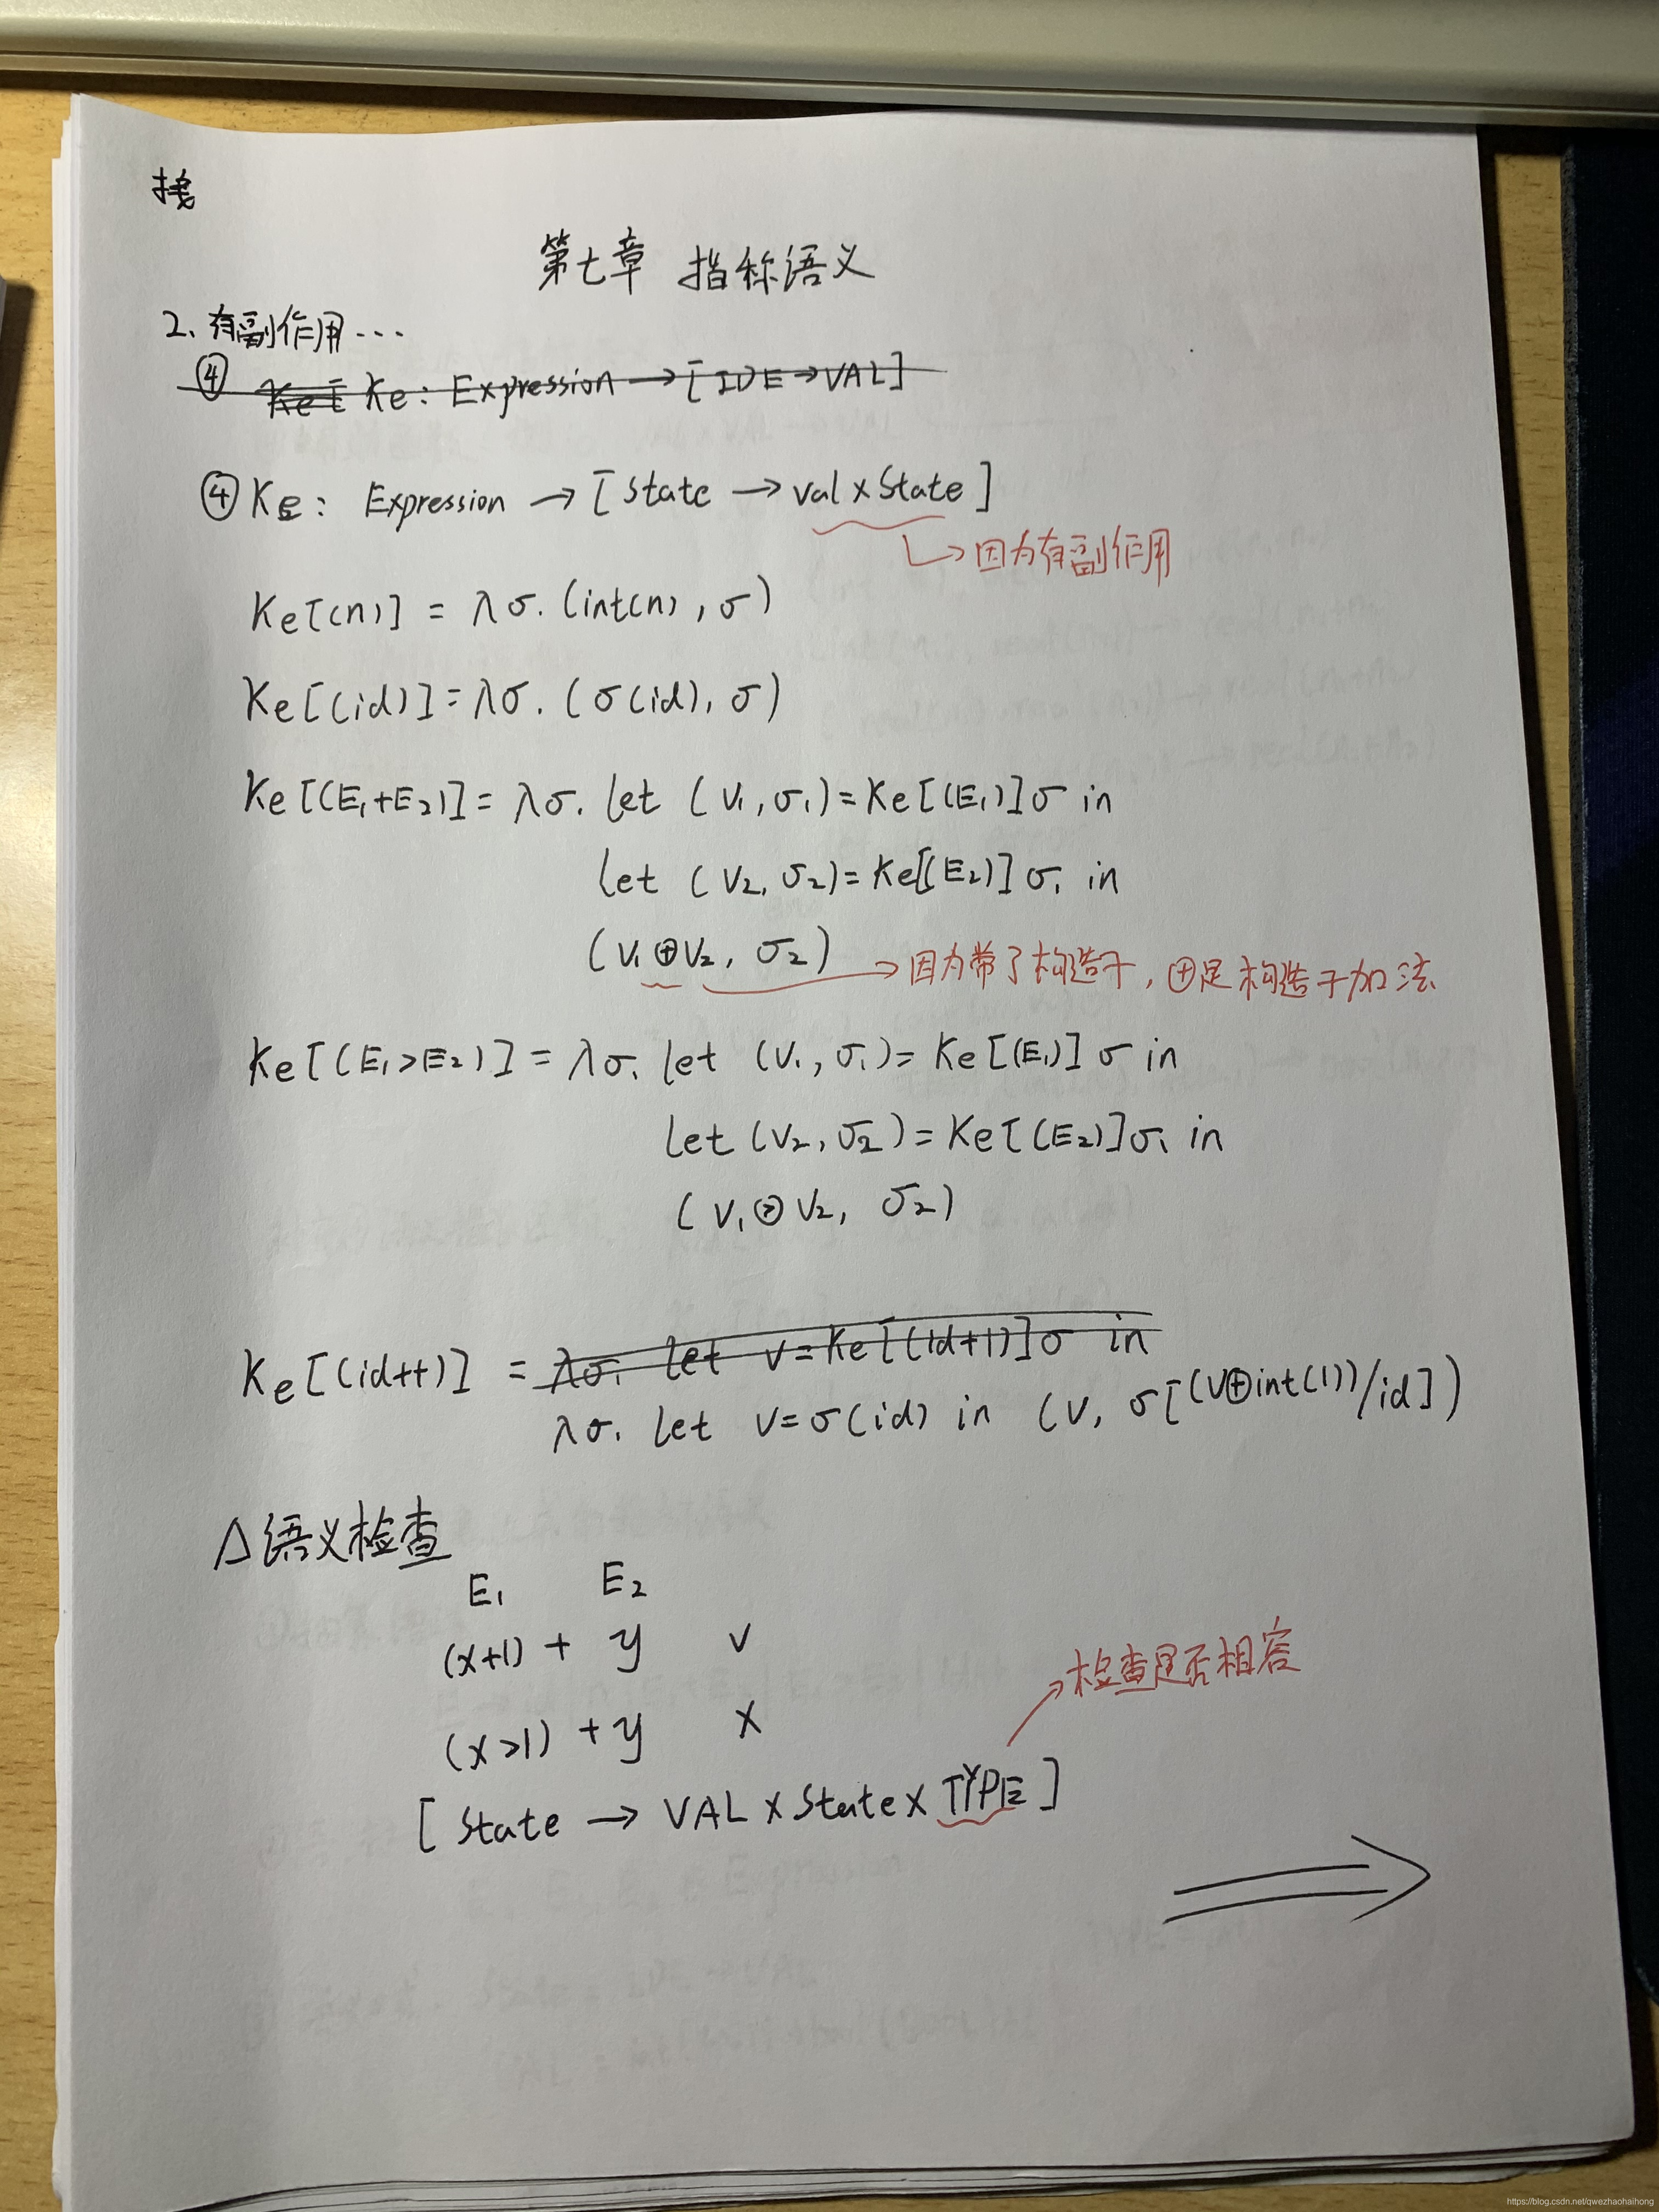 第七章 指称语义
2、有副作用...
④ Ke: Expression → [IDE → VAL]
④ Ke: Expression → [State → val × State]
因为有副作用
Ke[(n)] = λσ. (int(n), σ)
Ke[(id)] = λσ. (σ(id), σ)
Ke[(E₁+E₂)] = λσ. let (V₁, σ₁) = Ke[(E₁)]σ in
let (V₂, σ₂) = Ke[(E₂)]σ₁ in
(V₁⊕V₂, σ₂) → 因为带了构造子, ⊕是构造子加法
Ke[(E₁>E₂)] = λσ. let (V₁, σ₁) = Ke[(E₁)]σ in
let (V₂, σ₂) = Ke[(E₂)]σ₁ in
(V₁ⓧV₂, σ₂)
Ke[(id++)] = λσ. let v = Ke[(id+1)]σ in
λσ. let v = σ(id) in (v, σ[(v⊕int(1))/id])
△语义检查
E₁ E₂
(x+1) + y √
(x>1) + y ×
检查是否相容
[State → VAL × State × TYPE]
⇒
https://blog.csdn.net/qwezhaohaihong